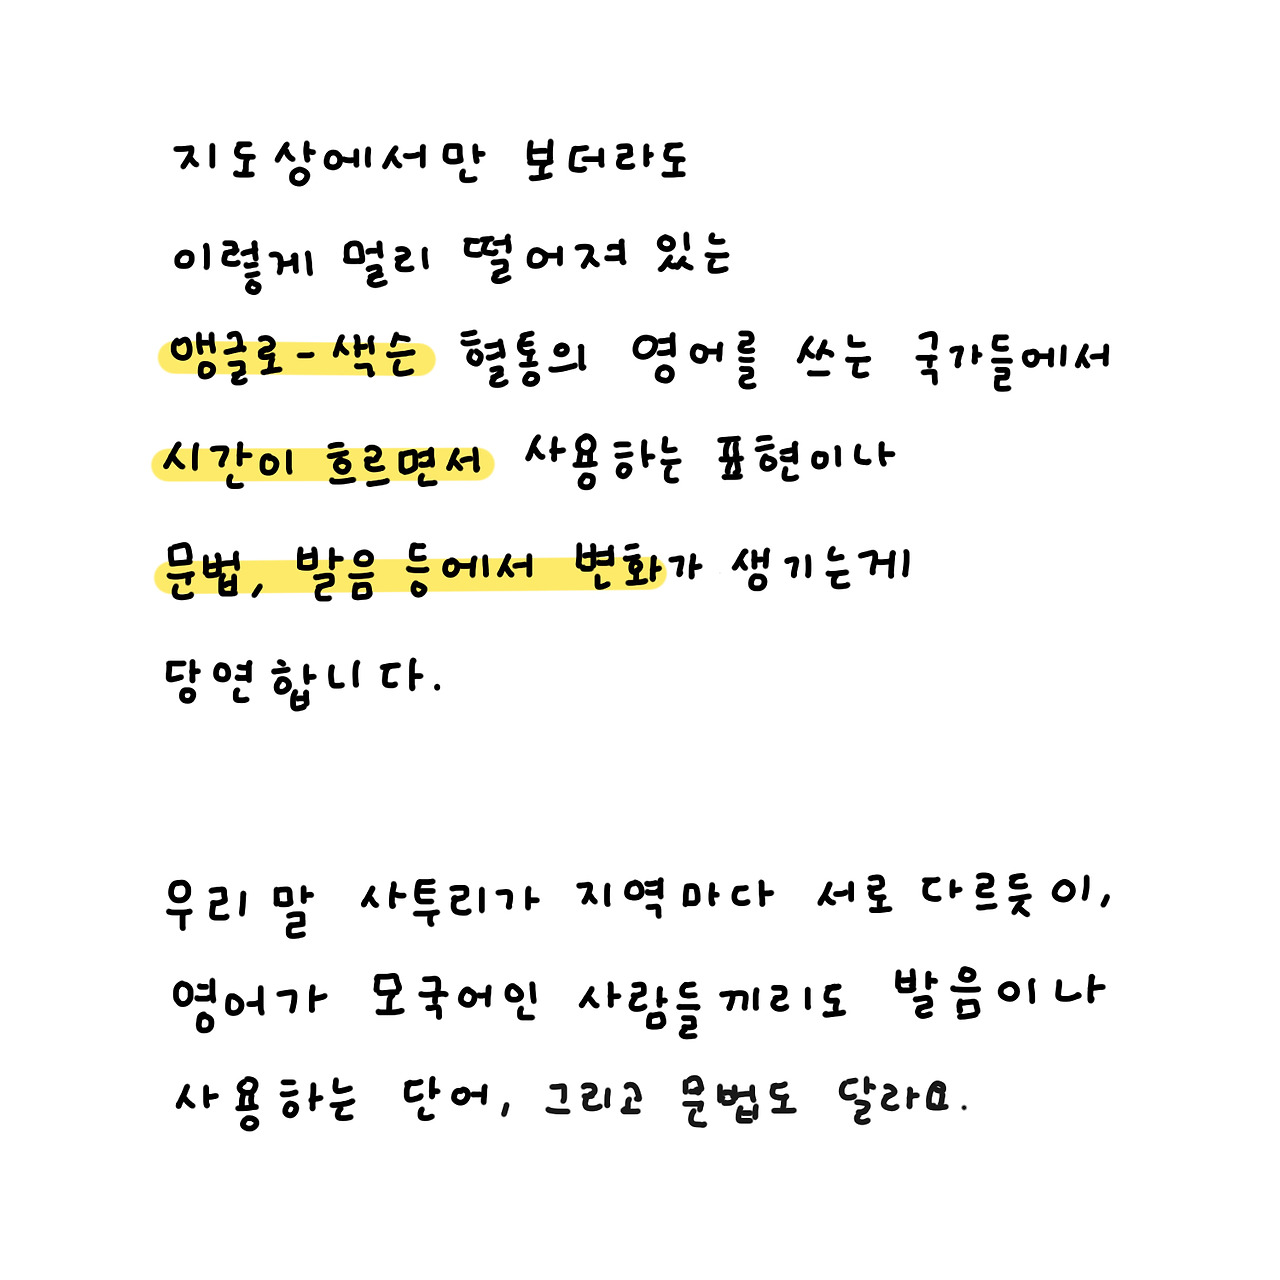 지도상에서만 보더라도
이렇게 멀리 떨어져 있는
앵글로-색슨 혈통의 영어를 쓰는 국가들에서
시간이 흐르면서 사용하는 표현이나
문법, 발음 등에서 변화가 생기는게
당연합니다.
우리말 사투리가 지역마다 서로 다르듯이,
영어가 모국어인 사람들끼리도 발음이나
사용하는 단어, 그리고 문법도 달라요.